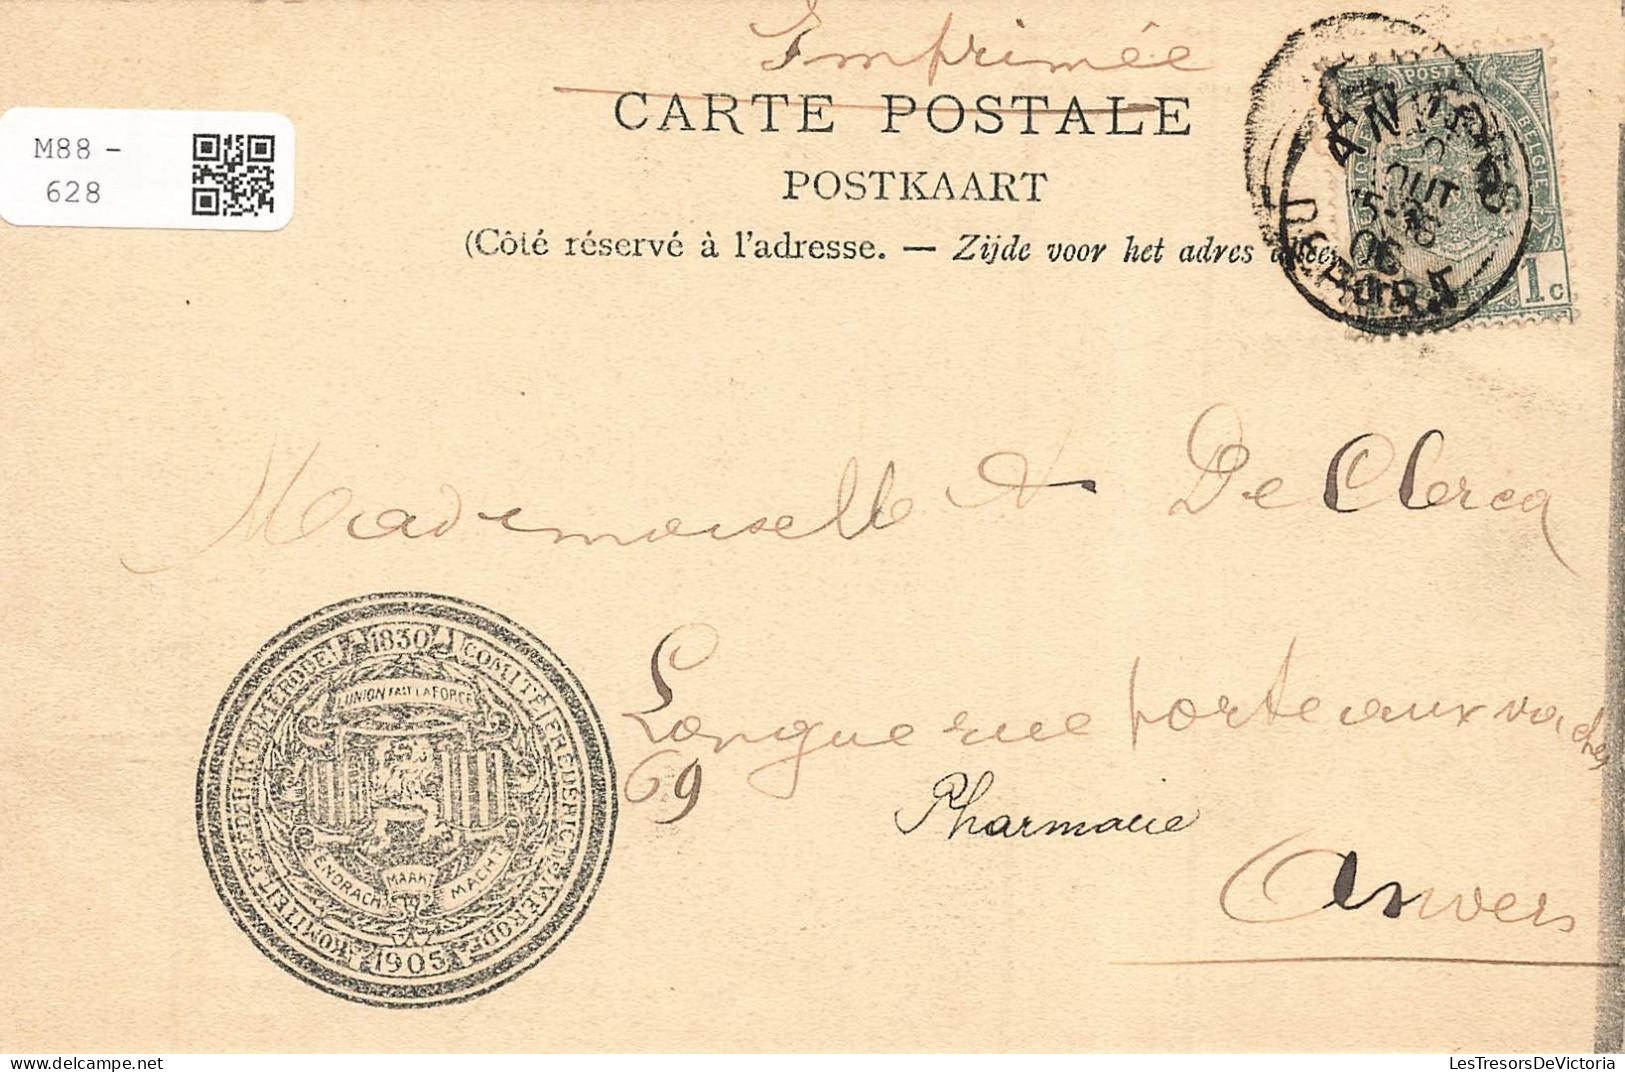 Imprimée
CARTE POSTALE
POSTKAART
(Côté réservé à l'adresse. — Zijde voor het adres
M88 -
628
POSTE
BELGIE
1c
ANVERS
OUT
06
DEPART
Mademoiselle De Clercq
Longue rue porte aux vaches
69
Pharmacie
Anvers
1830
COMITÉ FREDERIC DE MERODE
1905
KOMITEIT FREDERIK DE MERODE
L'UNION FAIT LA FORCE
EENDRACHT MAAKT MACHT
LesTresorsDeVictoria